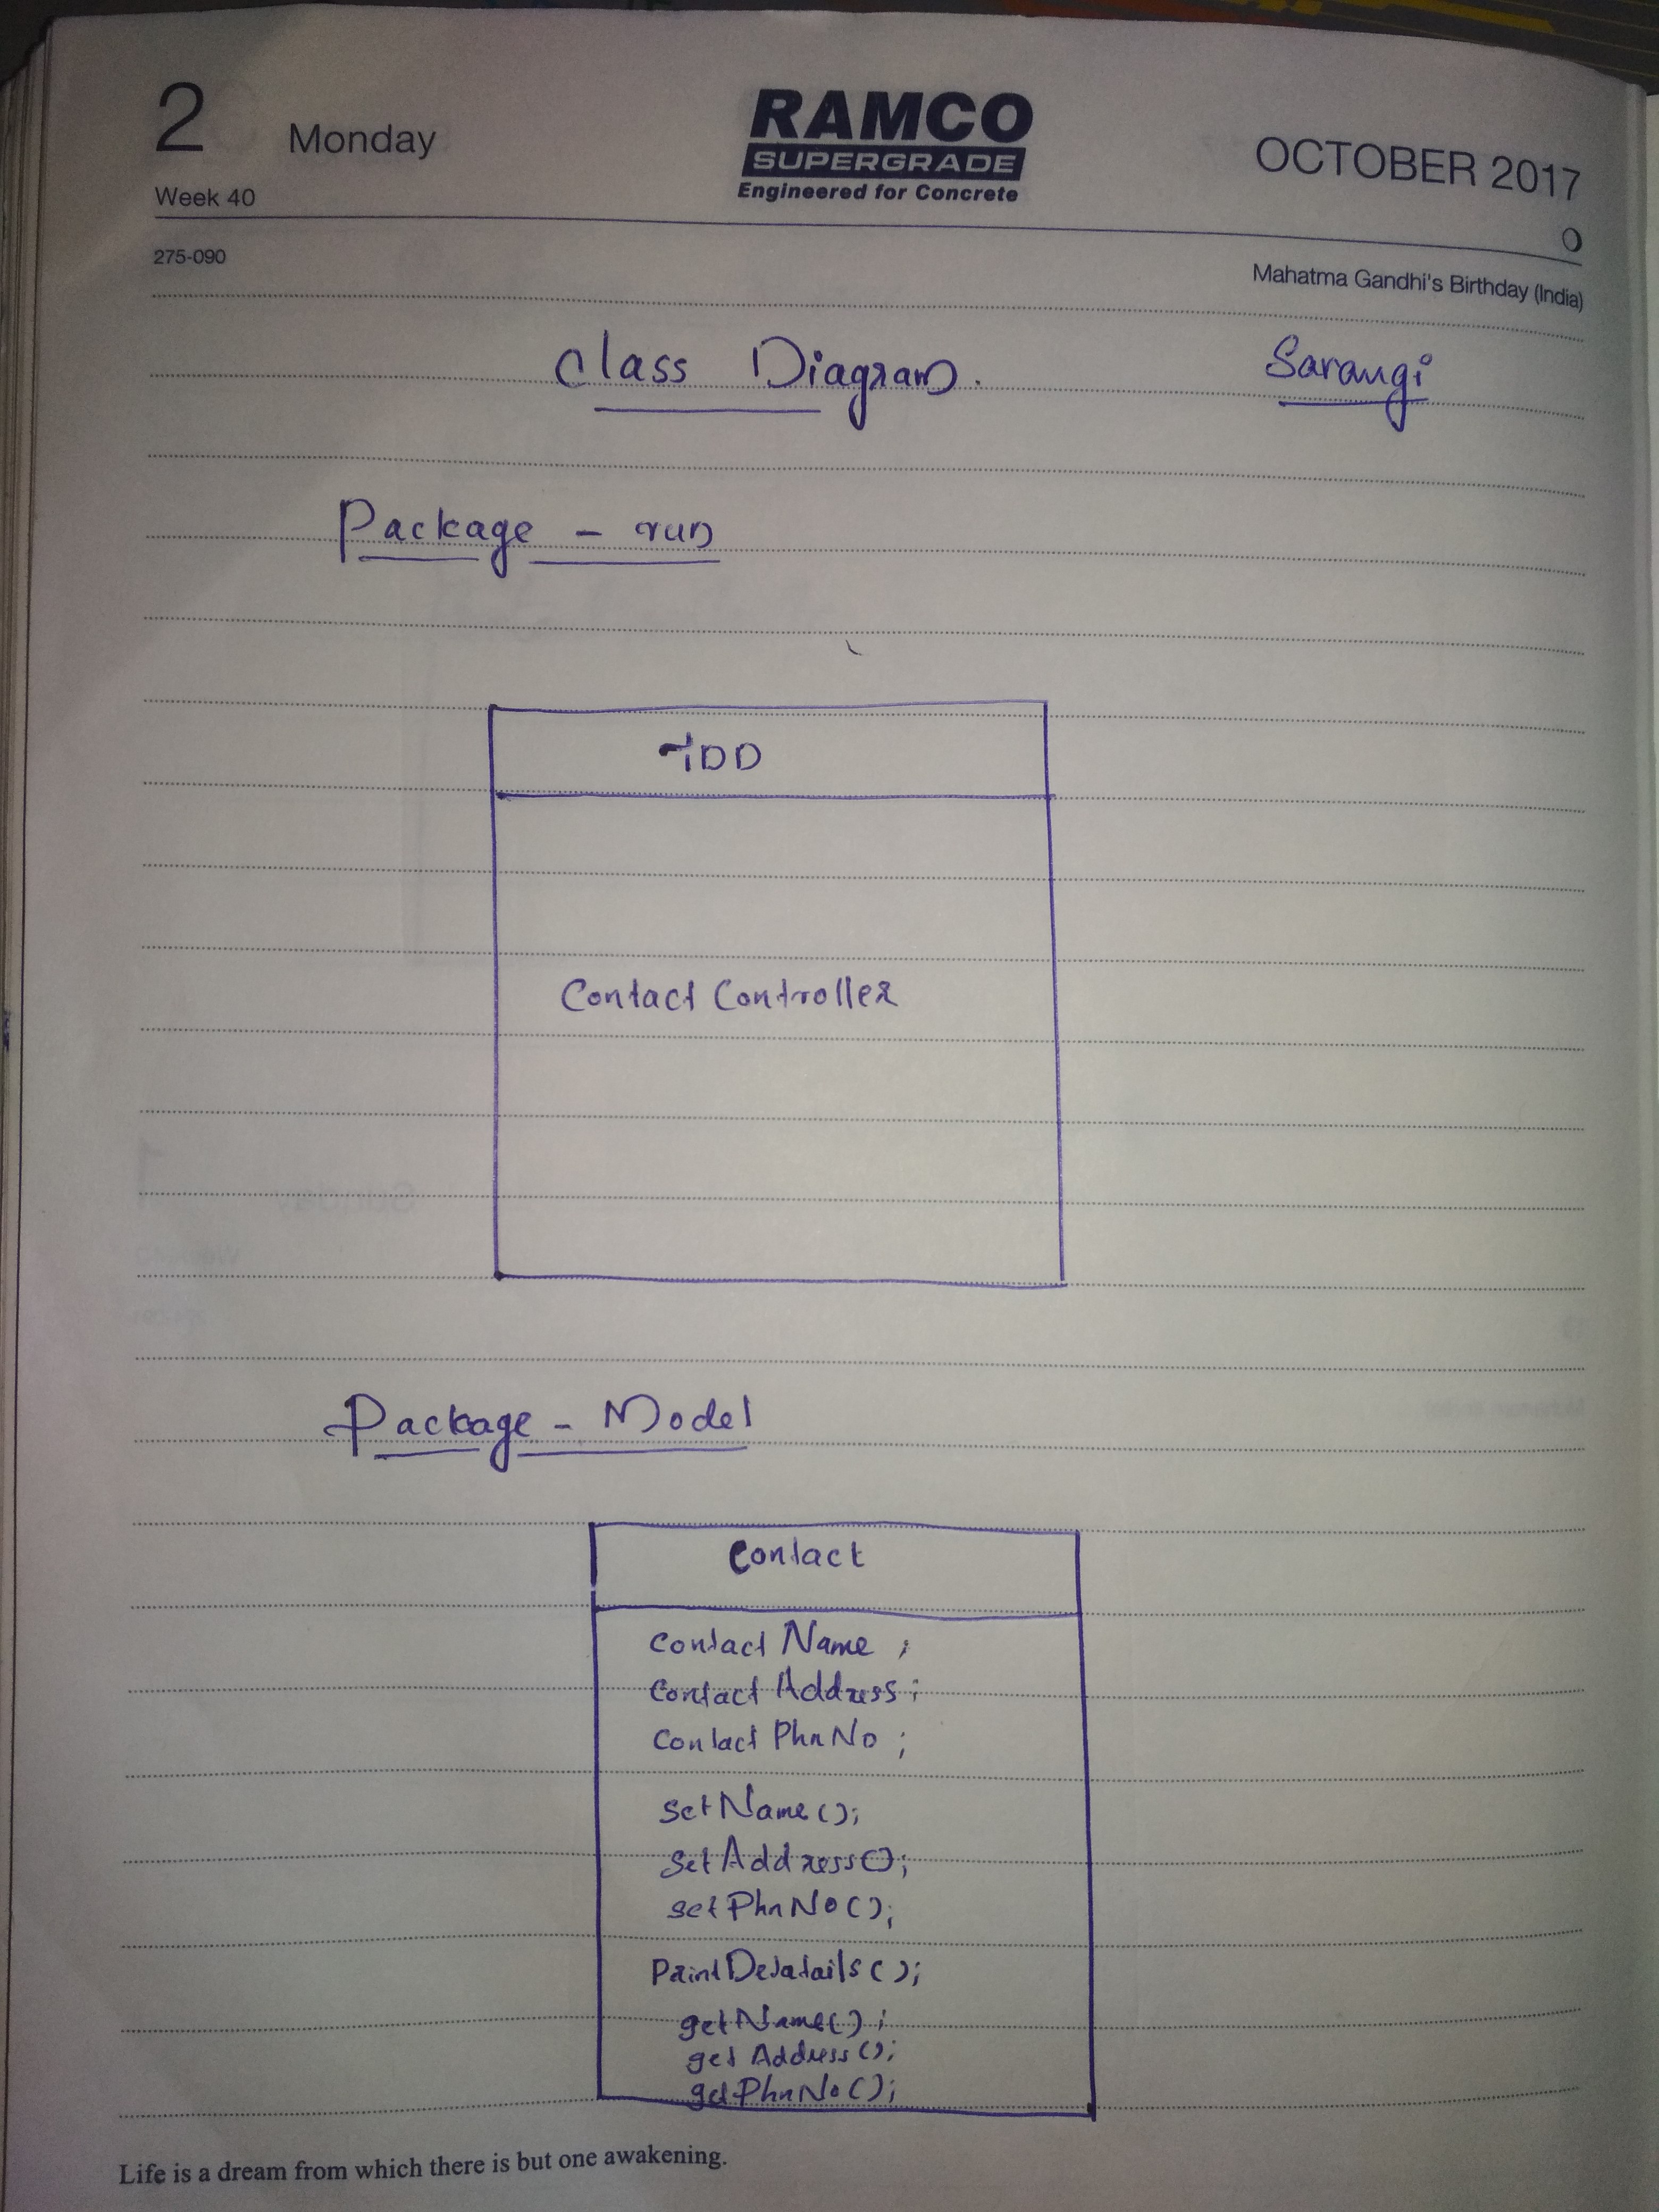 2 Monday
RAMCO
SUPERGRADE
Engineered for Concrete
OCTOBER 2017
Week 40
275-090
Mahatma Gandhi's Birthday (India)
Class Diagram.
Sarangi
Package - run
TDD
Contact Controller
Package - Model
Contact
Contact Name ;
Contact Address ;
Contact PhnNo ;
SetName();
SetAddress();
setPhnNo();
PrintDetatails();
getName();
getAddress();
getPhnNo();
Life is a dream from which there is but one awakening.